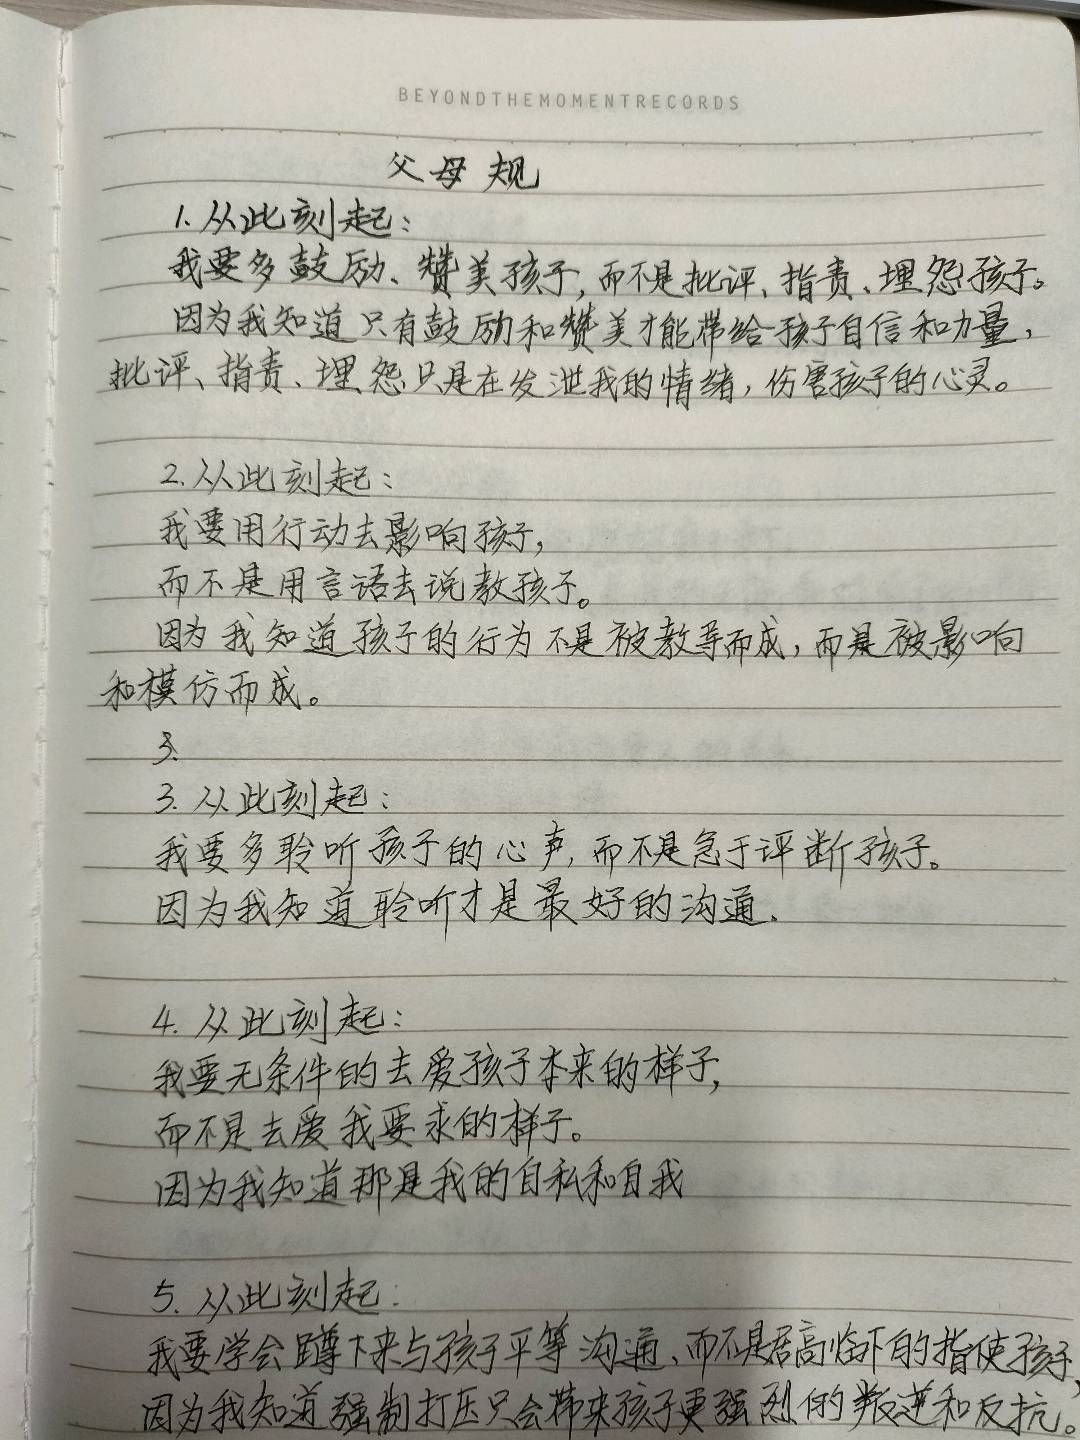 BEYONDTHEMOMENTRECORDS
父母规
1.从此刻起：
我要多鼓励、赞美孩子,而不是批评、指责、埋怨孩子。
因为我知道只有鼓励和赞美才能带给孩子自信和力量，
批评、指责、埋怨只是在发泄我的情绪，伤害孩子的心灵。
2.从此刻起：
我要用行动去影响孩子,
而不是用言语去说教孩子。
因为我知道孩子的行为不是被教导而成，而是被影响
和模仿而成。
3.
3.从此刻起：
我要多聆听孩子的心声,而不是急于评断孩子。
因为我知道聆听才是最好的沟通.
4.从此刻起：
我要无条件的去爱孩子本来的样子,
而不是去爱我要求的样子。
因为我知道那是我的自私和自我
5.从此刻起：
我要学会蹲下来与孩子平等沟通、而不是居高临下的指使孩子,
因为我知道强制打压只会带来孩子更强烈的叛逆和反抗。